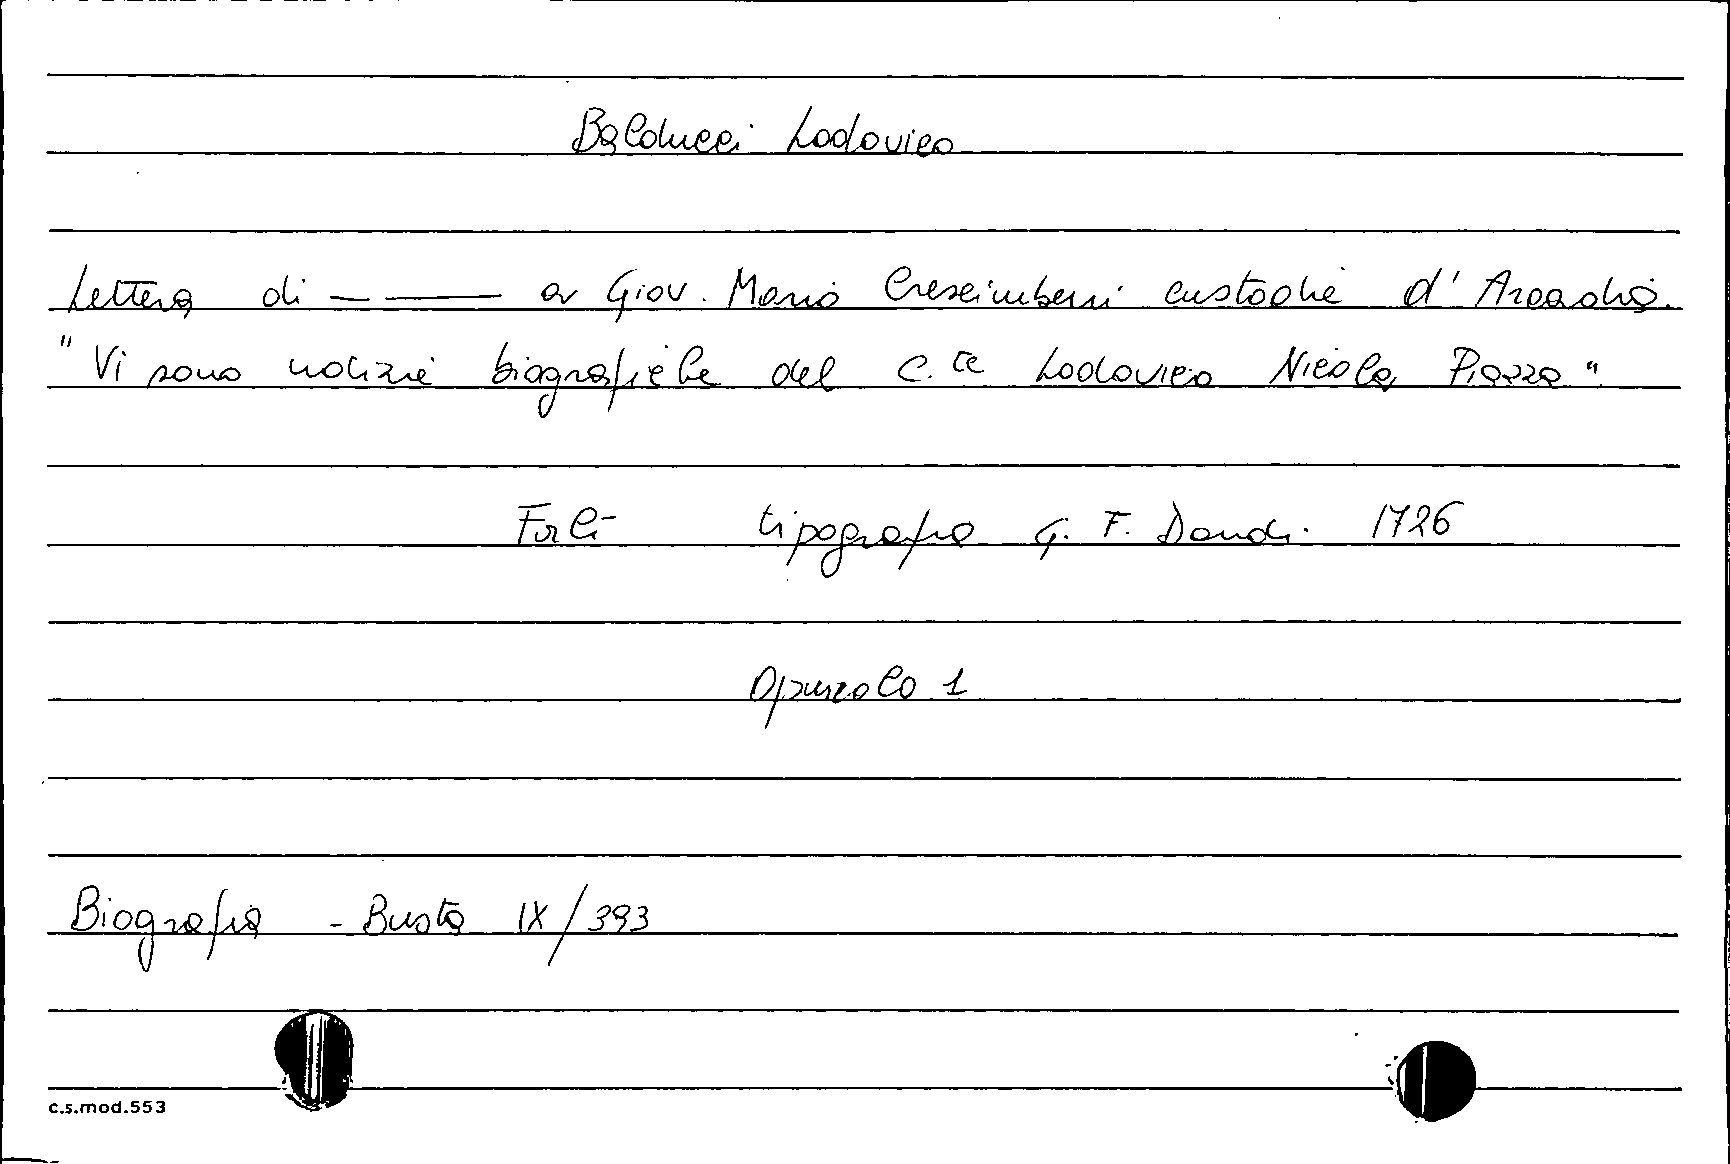 Balducci Lodovico
Lettera di — —— a Giov. Maria Crescimbeni custode d'Arcadia.
"Vi sono notizie biografiche del C.te Lodovico Nicola Piazza"
Forlì tipografia G. F. Dandi. 1726
Opuscolo 1
Biografia - Busta IX/393
c.s.mod.553